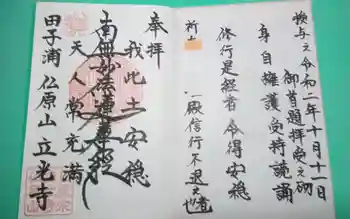 授与之 令和二年十月十一日
御首題拝受之砌
身自擁護受持読誦
修行是経者 令得安穏
祈
一殿信行不退者也
奉拝
我此土安穏
南無妙法蓮華経
天人常充満
田子浦 仏原山 立光寺